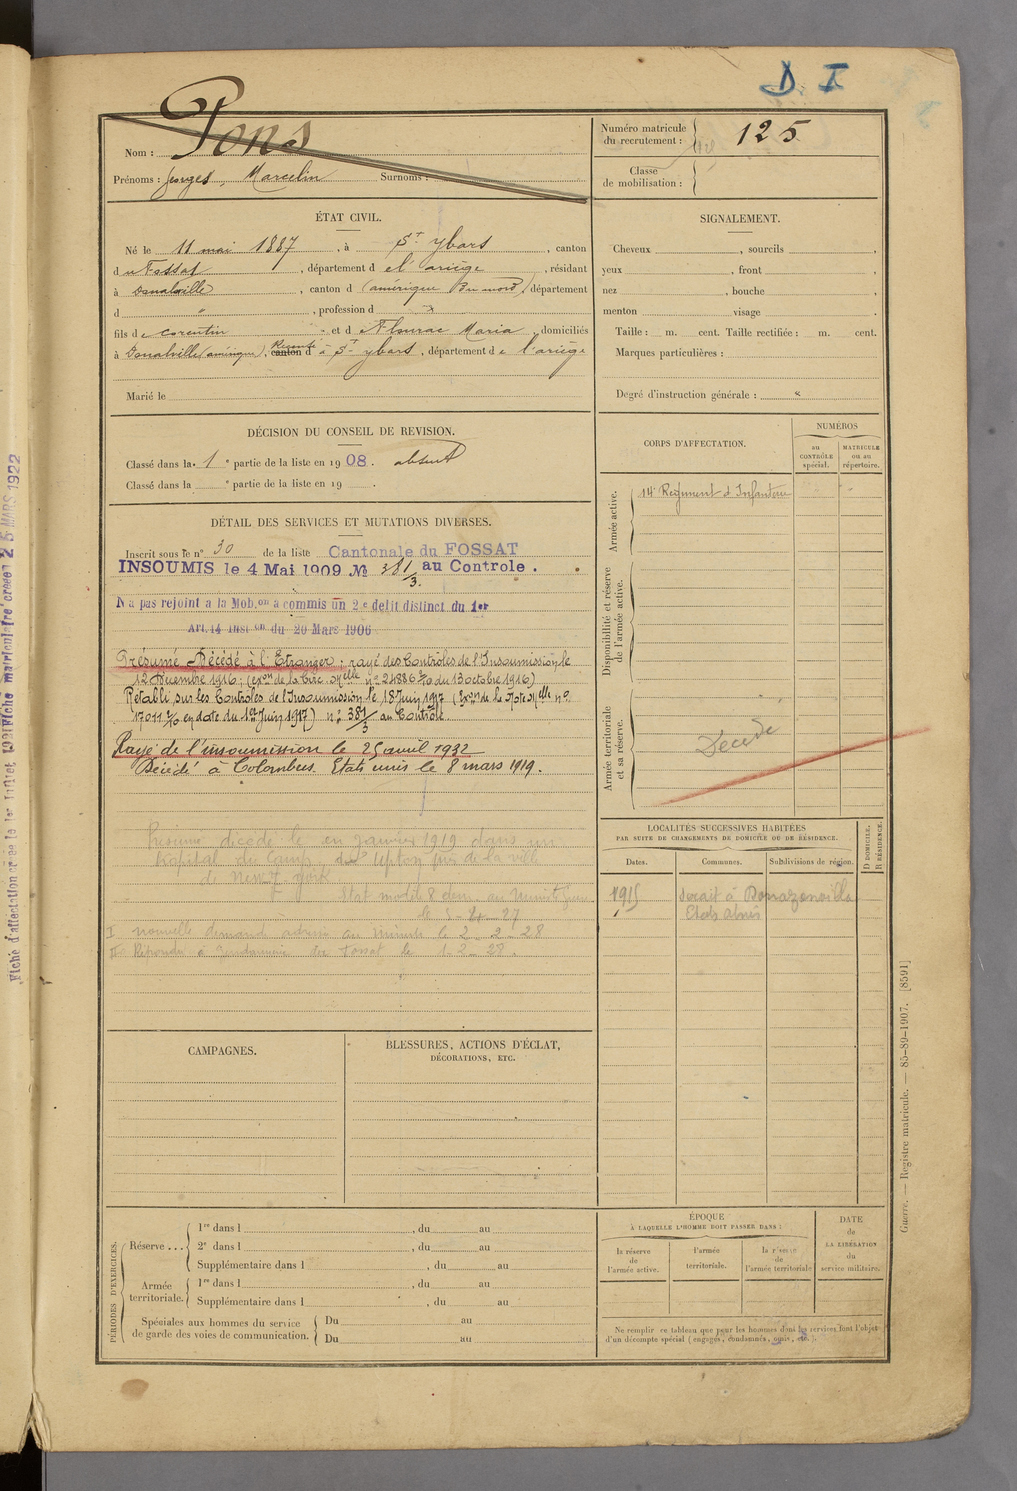 D. I
Nom : Pons
Prénoms : Georges, Marcelin Surnoms :
Numéro matricule du recrutement : 125
Classe de mobilisation :
ÉTAT CIVIL.
Né le 11 mai 1887, à St ybars, canton
du Fossat, département de l'ariège, résidant
à Donalville, canton d (amérique Du nord), département
d " , profession d
fils de Corentin et d Maria, domiciliés
à Donalville (amérique), canton d Résenté à St ybars, département de l'ariège
Marié le
SIGNALEMENT.
Cheveux , sourcils ,
yeux , front ,
nez , bouche ,
menton visage
Taille : m. cent. Taille rectifiée : m. cent.
Marques particulières :
Degré d'instruction générale : "
DÉCISION DU CONSEIL DE REVISION.
Classé dans la 1e partie de la liste en 1908. absent
Classé dans la e partie de la liste en 19 .
CORPS D'AFFECTATION.
NUMÉROS
au CONTRÔLE spécial.
MATRICULE ou au répertoire.
Armée active.
14e Régiment d'Infanterie
Disponibilité et réserve de l'armée active.
Armée territoriale et sa réserve.
Décédé
DÉTAIL DES SERVICES ET MUTATIONS DIVERSES.
Inscrit sous le n° 30 de la liste Cantonale du FOSSAT
INSOUMIS le 4 Mai 1909 No 381/3. au Controle.
N'a pas rejoint a la Mob.on a commis un 2e delit distinct du 1er
Art.14 Inst.on du 20 Mars 1906
Présumé Décédé à l'Etranger : rayé des Contrôles de l'Insoumission le
12 Décembre 1916; (exon de la Circ. Melle no 24886 3/10 du 13 octobre 1916)
Rétabli sur les Contrôles de l'Insoumission le 18 Juin 1917 (Exon de la Note Melle no
17011 3/10 en date du 1er Juin 1917) no 381/3 au Contrôle.
Rayé de l'insoumission le 25 avril 1932
Décédé à Colombus. Etats unis le 8 mars 1919.
Présumé décédé le en janvier 1919 dans un
hôpital du Camp de Upton près de la ville
de New York
Etat modèle 8 au Ministre
I nouvelle demande adressée au Ministre le 2 - 2 - 28
II Répondu à Gendarmerie du Fossat le
LOCALITÉS SUCCESSIVES HABITÉES
PAR SUITE DE CHANGEMENTS DE DOMICILE OU DE RÉSIDENCE.
Dates. Communes. Subdivisions de région.
D DOMICILE, R RÉSIDENCE.
1915 serait à
CAMPAGNES.
BLESSURES, ACTIONS D'ÉCLAT,
DÉCORATIONS, ETC.
PÉRIODES D'EXERCICES.
Réserve...
1re dans l , du au
2e dans l , du au
Supplémentaire dans l , du au
Armée territoriale.
1re dans l , du au
Supplémentaire dans l , du au
Spéciales aux hommes du service de garde des voies de communication.
Du au
Du au
ÉPOQUE
À LAQUELLE L'HOMME DOIT PASSER DANS :
la réserve de l'armée active.
l'armée territoriale.
la réserve de l'armée territoriale
DATE de LA LIBÉRATION du service militaire.
Ne remplir ce tableau que pour les hommes dont les services font l'objet
d'un décompte spécial (engagés, condamnés, omis, etc.).
Guerre. — Registre matricule. — 85-89-1907. [8591]